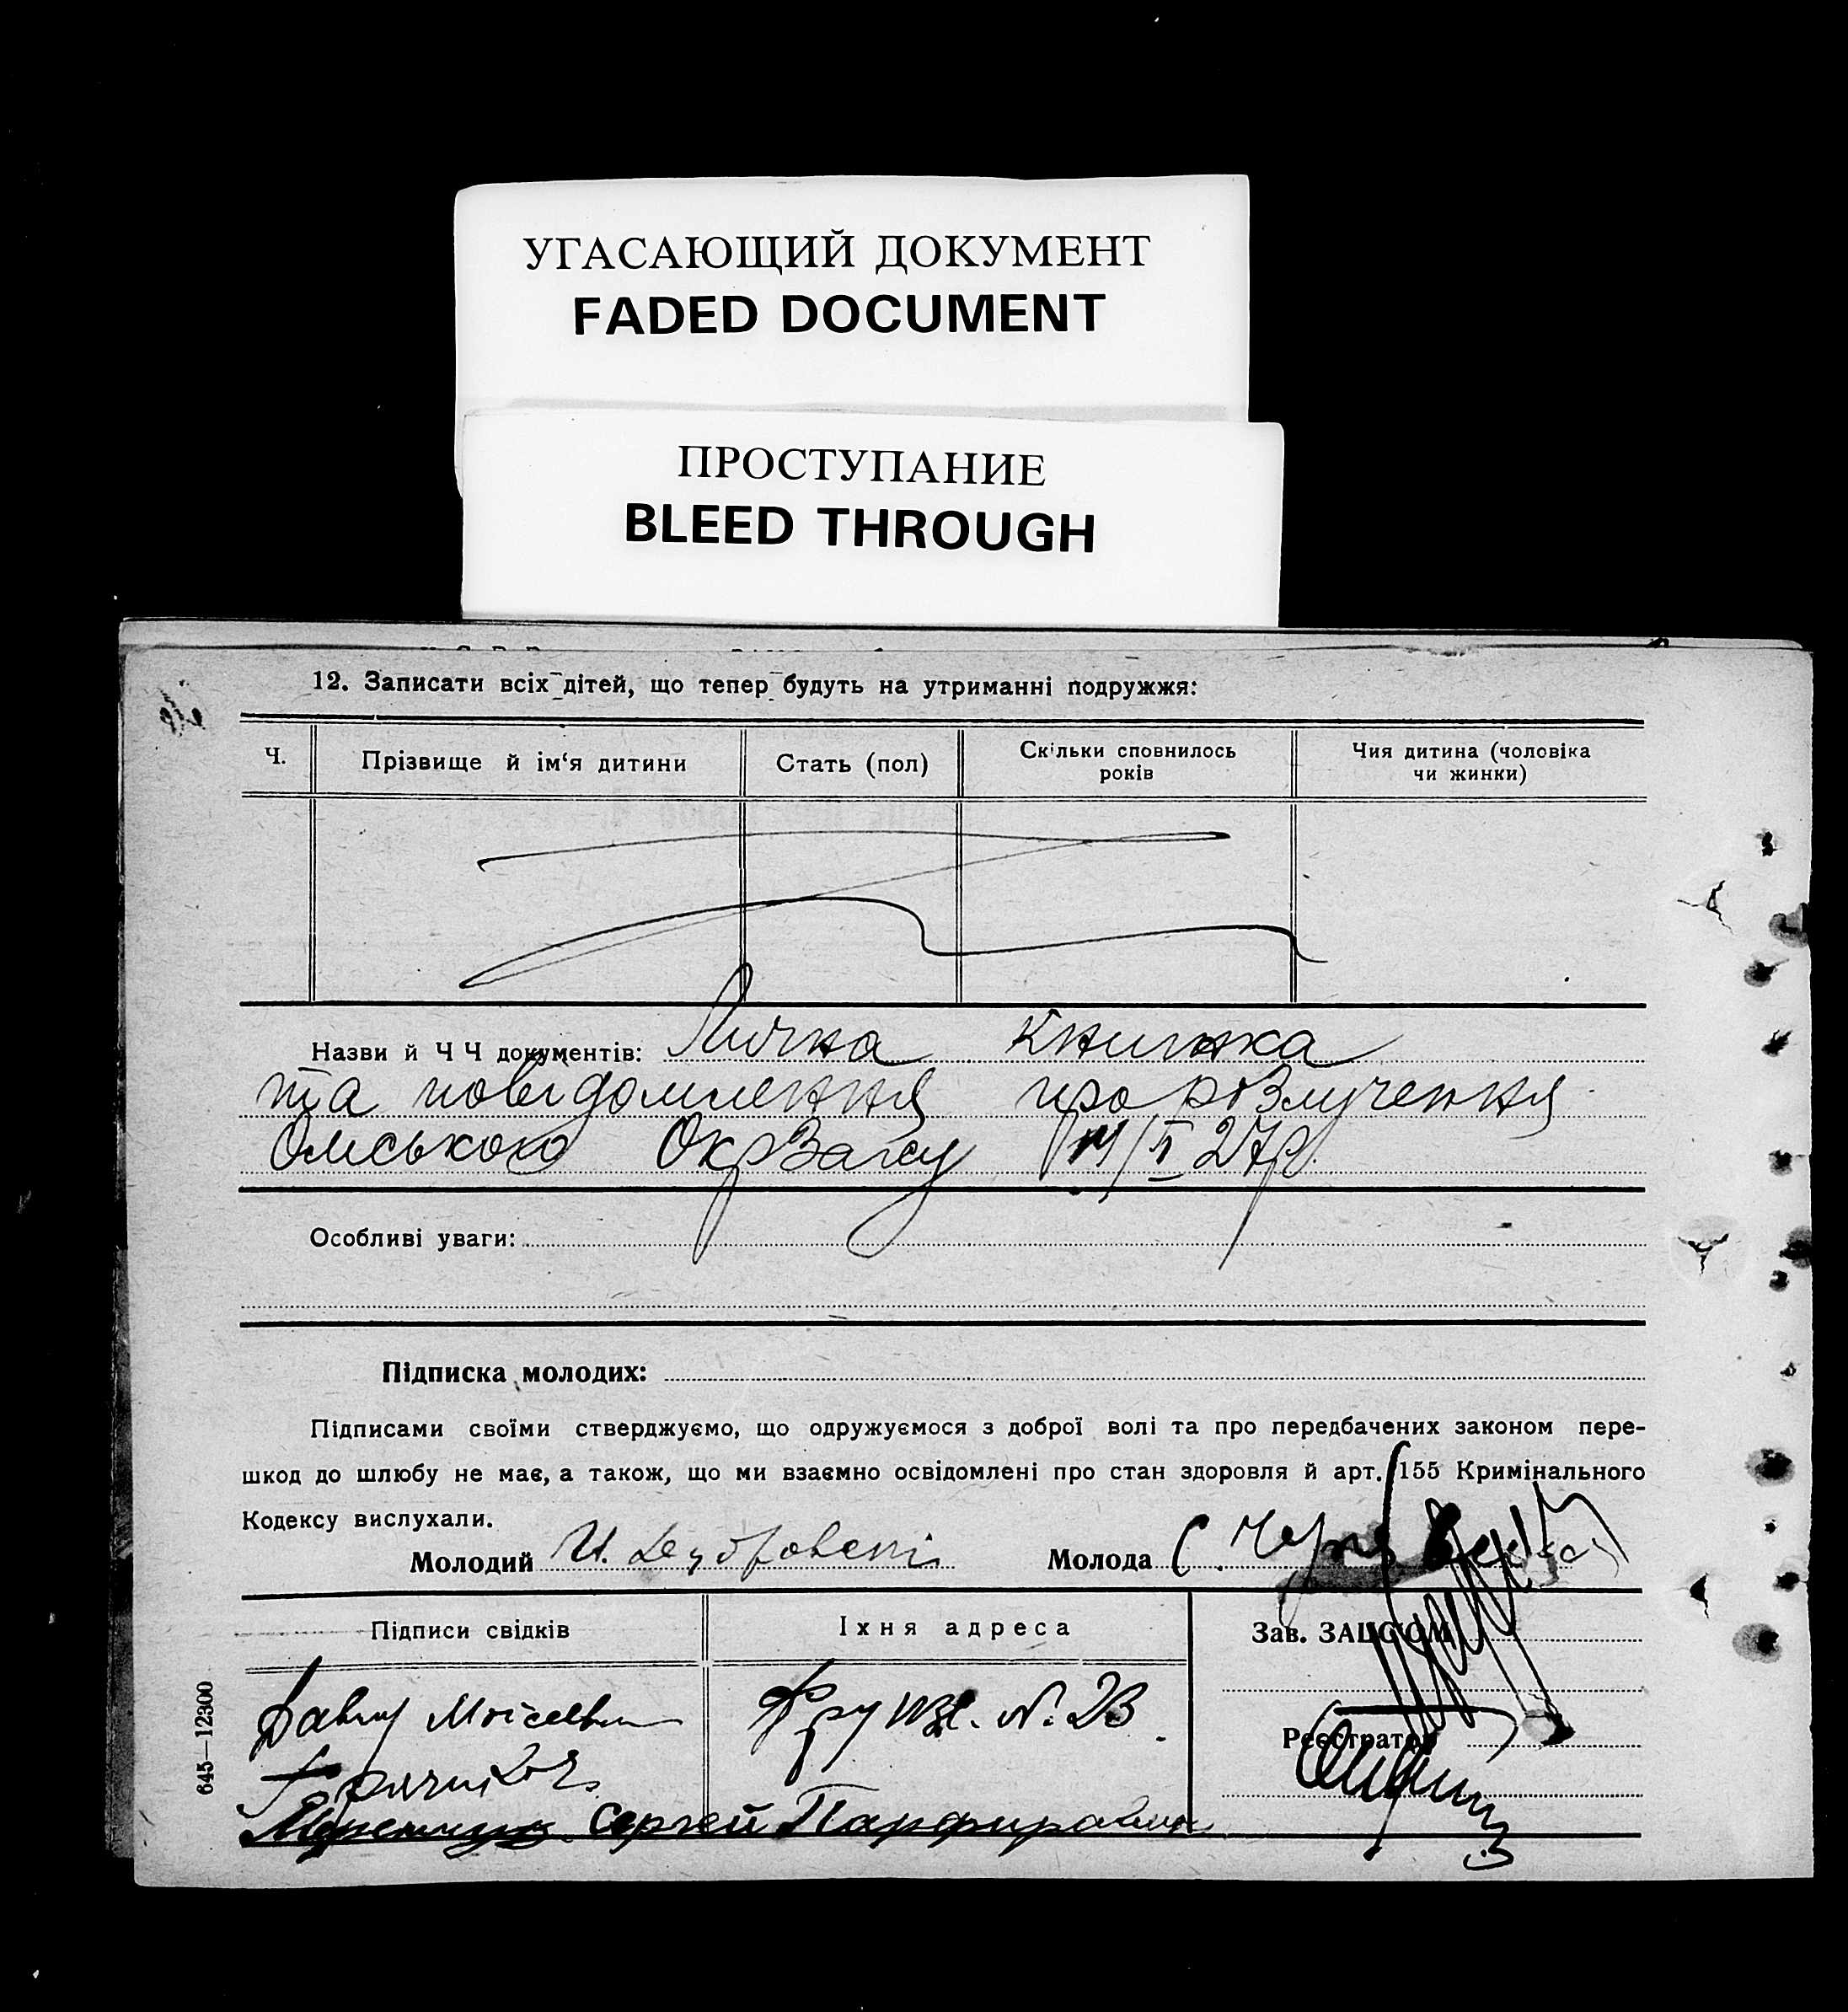 УГАСАЮЩИЙ ДОКУМЕНТ
FADED DOCUMENT
ПРОСТУПАНИЕ
BLEED THROUGH
12. Записати всіх дітей, що тепер будуть на утриманні подружжя:
Ч.
Прізвище й ім‘я дитини
Стать (пол)
Скільки сповнилось
років
Чия дитина (чоловіка
чи жинки)
Назви й Ч Ч документів: Лична книжка
та повідомлення про розлучення
Омською ОкрЗагсу 27р.
Особливі уваги:
Підписка молодих:
Підписами своїми стверджуємо, що одружуємося з доброї волі та про передбачених законом пере-
шкод до шлюбу не має, а також, що ми взаємно освідомлені про стан здоровля й арт. 155 Кримінального
Кодексу вислухали.
Молодий
Молода
Підписи свідків
Їхня адреса
Зав. ЗАЦСОМ
Моісеевич
N. 23
Реєстратор
Сергей Парфирович
645—12300